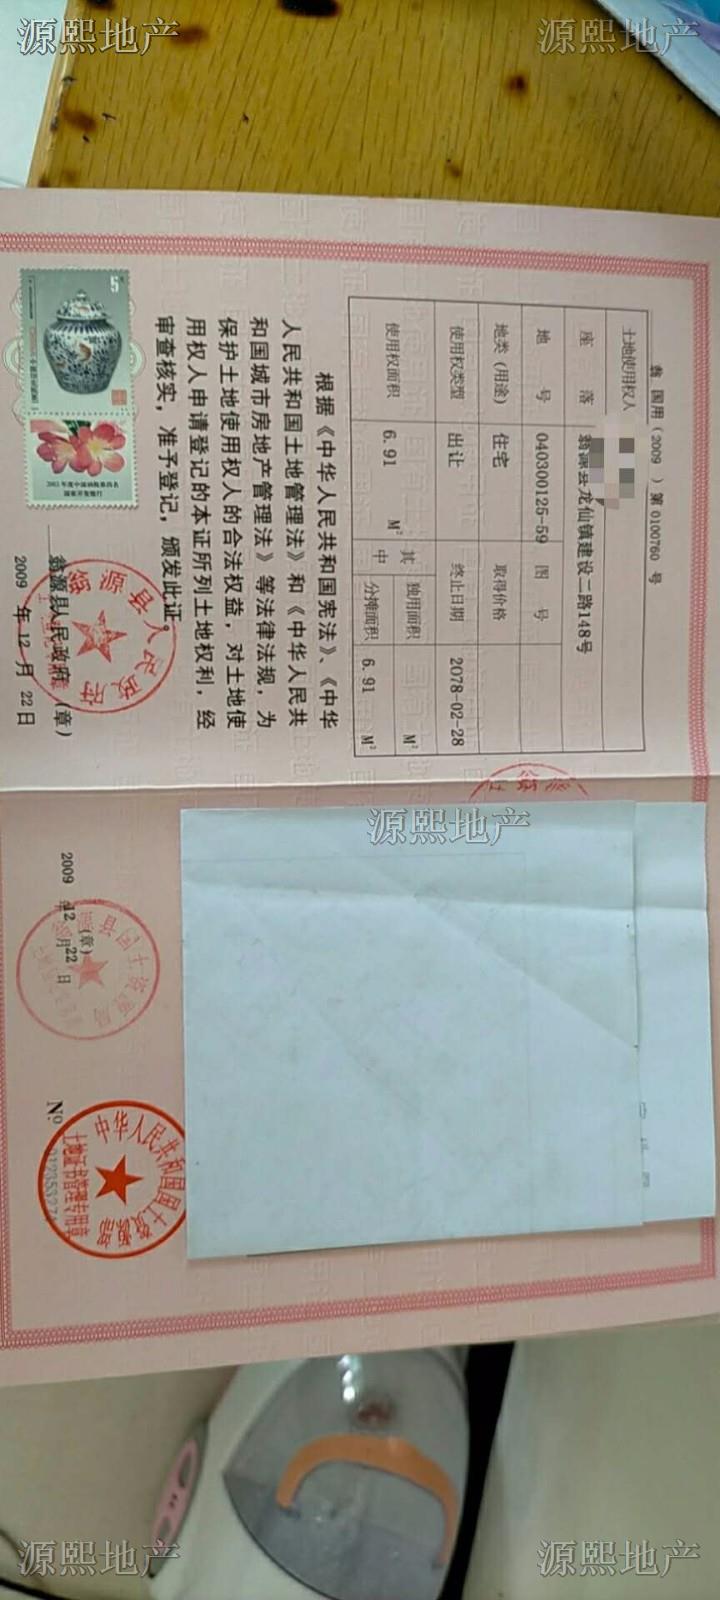 源熙地产
源熙地产
翁 国用 ( 2009 ) 第 0100760 号
土地使用权人
座 落 翁源县龙仙镇建设二路148号
地 号 040300125-59 图 号
地类 (用途) 住宅 取得价格
使用权类型 出让 终止日期 2078-02-28
使用权面积 6.91 M² 其中 独用面积 M²
分摊面积 6.91 M²
根据《中华人民共和国宪法》、《中华
人民共和国土地管理法》和《中华人民共
和国城市房地产管理法》等法律法规，为
保护土地使用权人的合法权益，对土地使
用权人申请登记的本证所列土地权利，经
审查核实，准予登记，颁发此证。
翁源县人民政府 (章)
2009 年 12 月 22 日
翁源县人民政府
5
2003 年度中国
国家开发银行
源熙地产
(章)
2009 年 12 月 22 日
翁源县国土资源局
Nº
中华人民共和国国土资源部
土地证书管理专用章
源熙地产
源熙地产